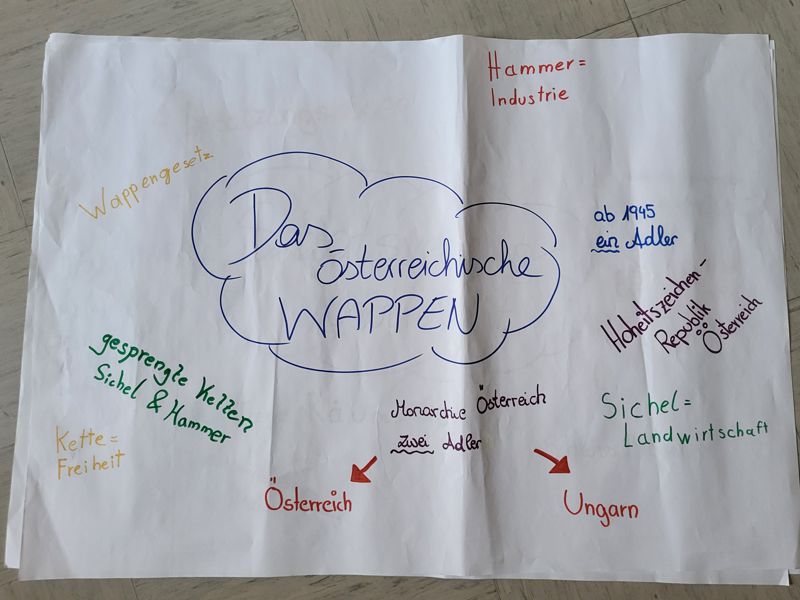 Hammer =
Industrie
Wappengesetz
Das
österreichische
WAPPEN
ab 1945
ein Adler
Hoheitszeichen -
Republik
Österreich
gesprengte Ketten
Sichel & Hammer
Kette =
Freiheit
Monarchie Österreich
zwei Adler
Sichel =
Landwirtschaft
Österreich
Ungarn